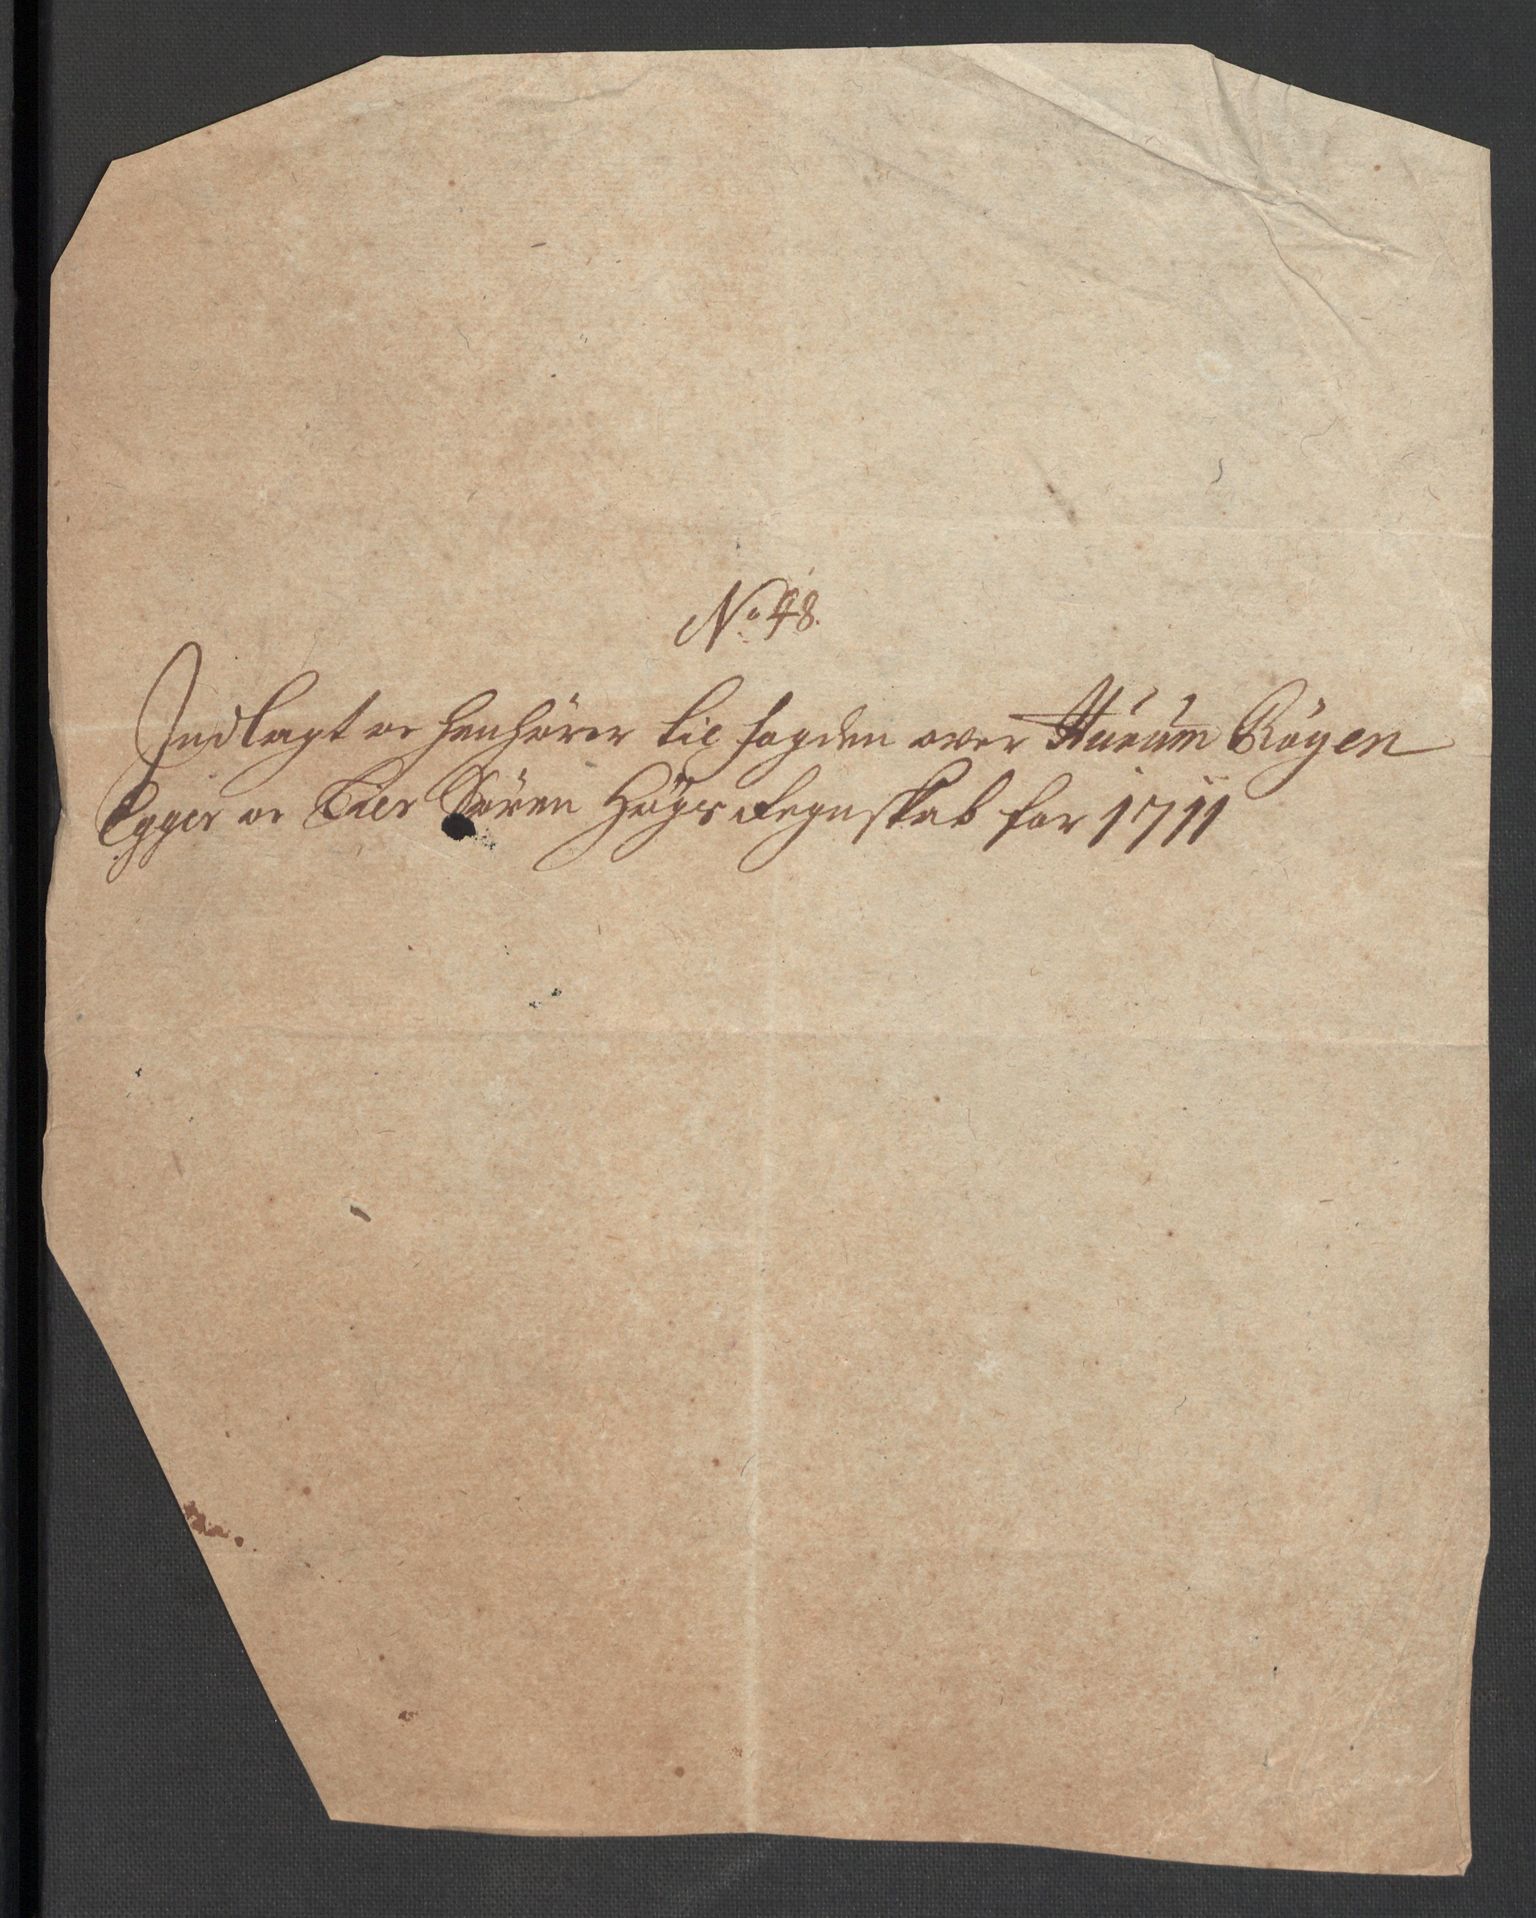 No 48.
Indlagt oc henhörer til fogden over Hurum Röyen
Egger oc Lier Sören Högs Regnskab for 1711